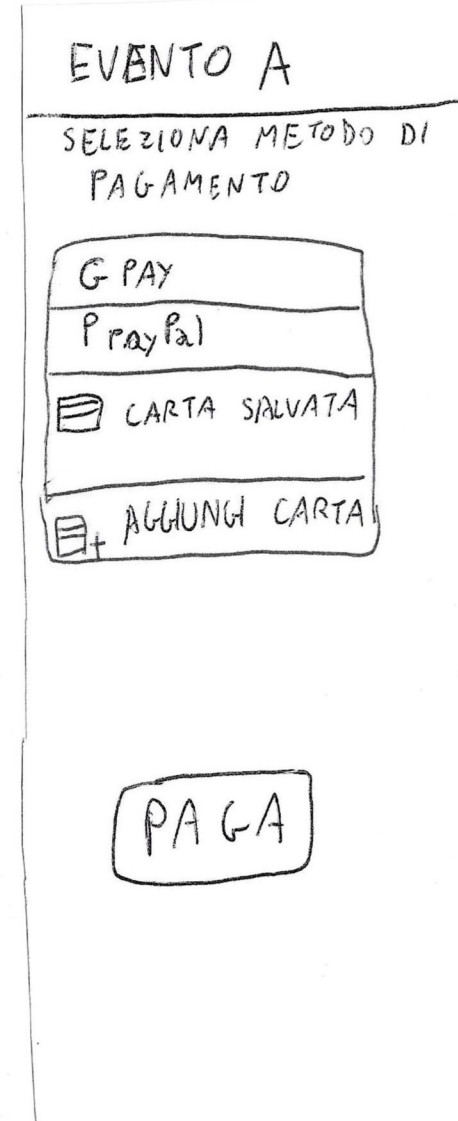 EVENTO A
SELEZIONA METODO DI
PAGAMENTO
G PAY
P PayPal
CARTA SALVATA
AGGIUNGI CARTA
PAGA